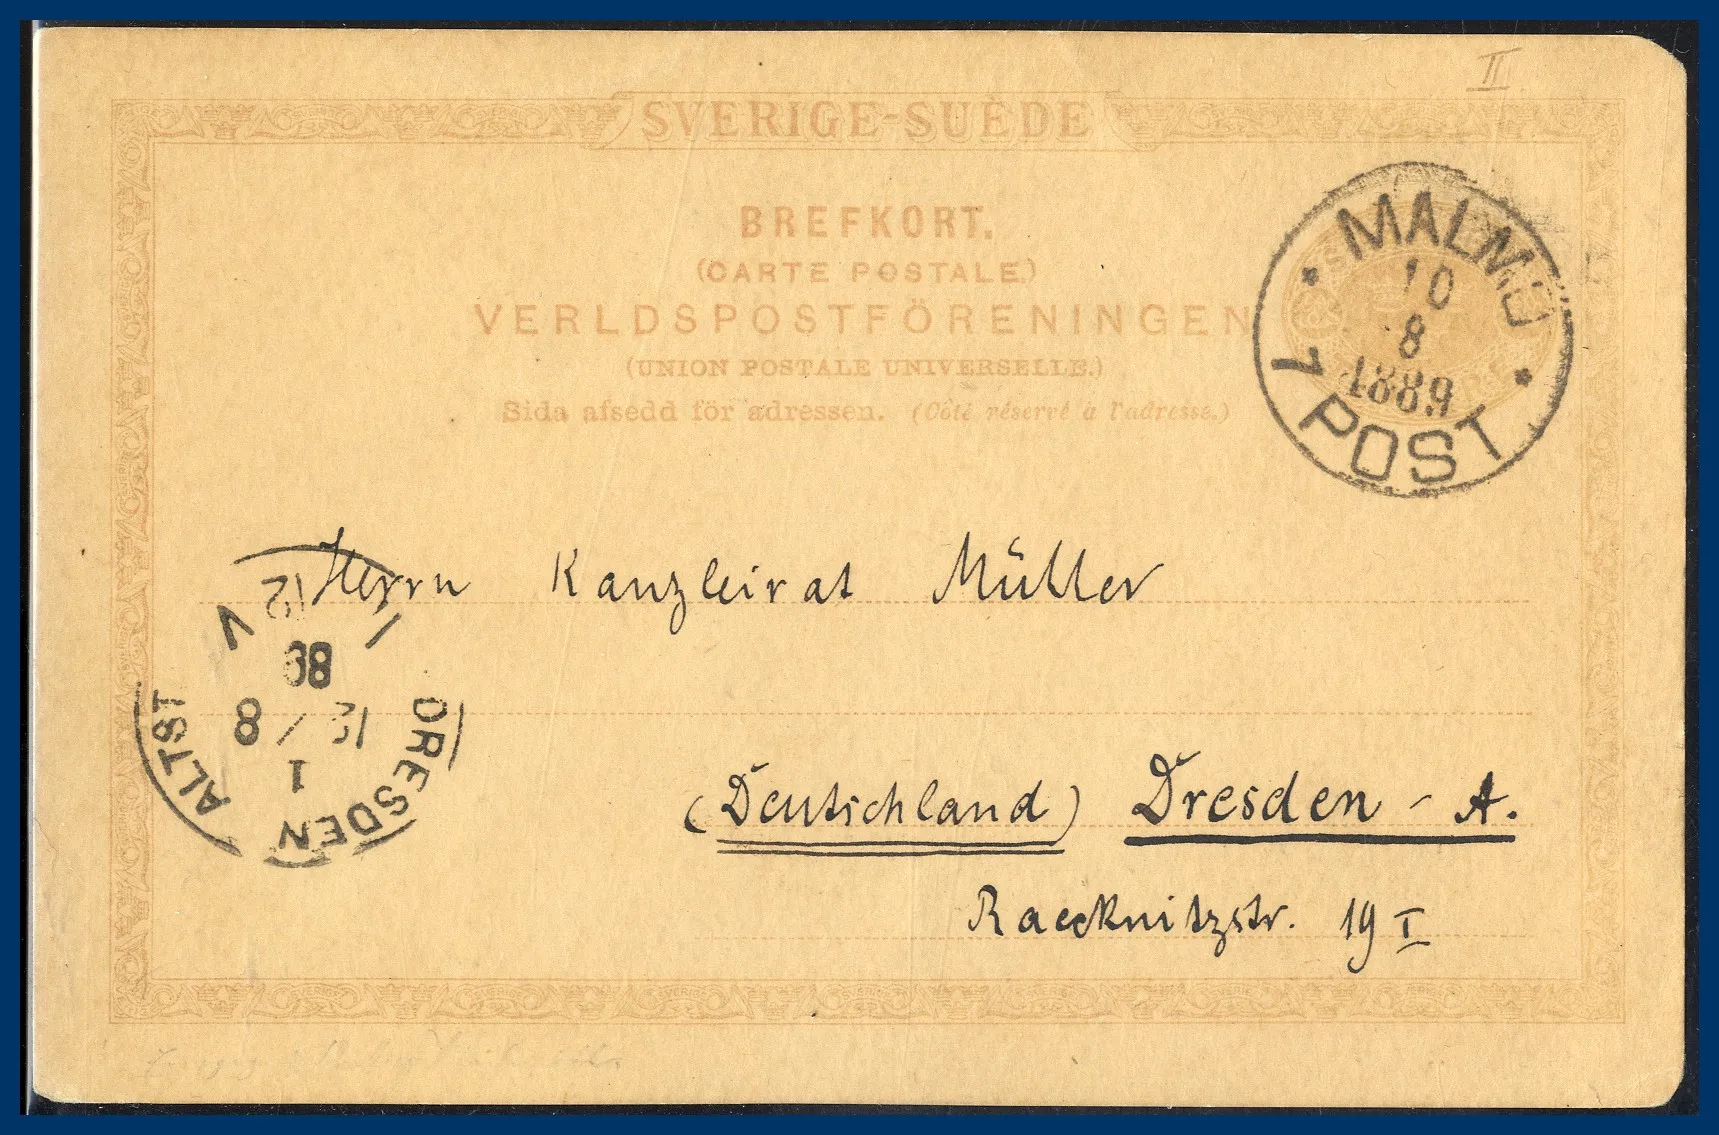 II
SVERIGE-SUÈDE
BREFKORT.
(CARTE POSTALE.)
VERLDSPOSTFÖRENINGEN
(UNION POSTALE UNIVERSELLE.)
Sida afsedd för adressen. (Côté réservé à l'adresse.)
MALMÖ
10
8
1889
1 POST
Herrn Kanzleirat Müller
(Deutschland) Dresden - A.
Raecknitzstr. 19 I
DRESDEN ALTST
1
12 / 8
89
V
12